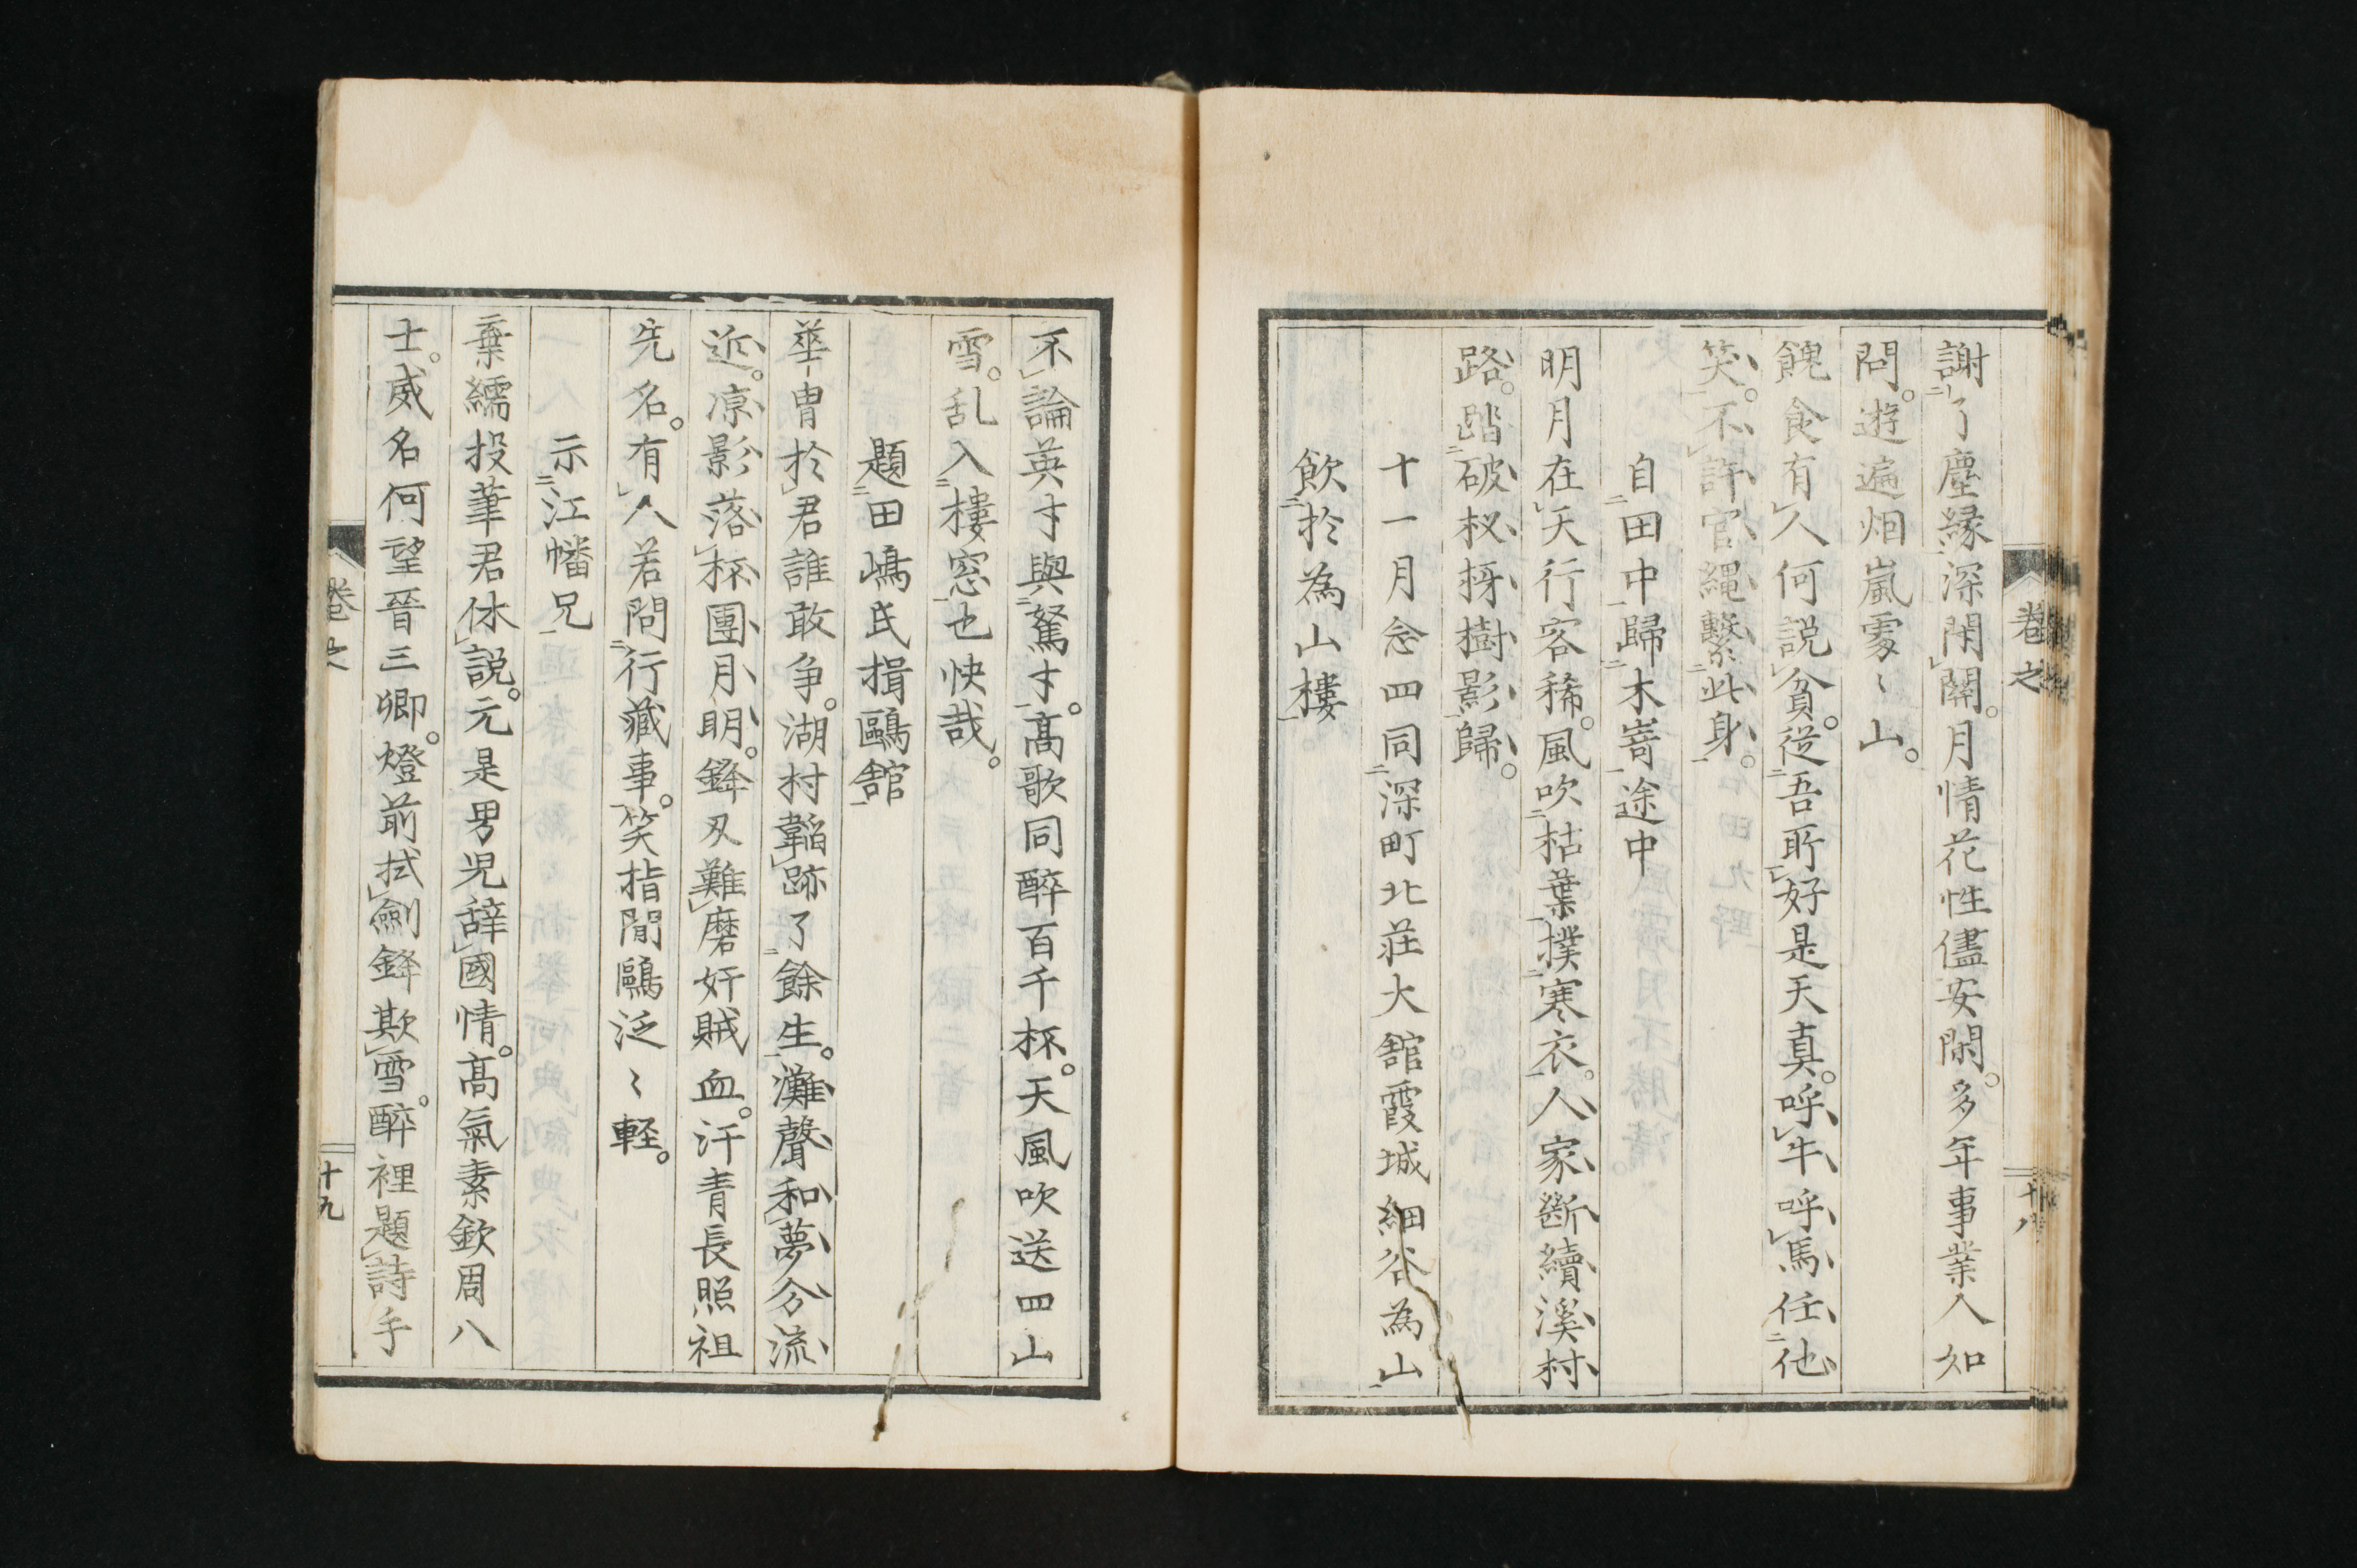 謝了塵縁深閉關。月情花性儘安閑。多年事業人如
問。遊遍烟嵐處〻山。
餽食有人何説貧。従吾所好是天真。呼牛呼馬任他
笑。不許官縄繫此身。
自田中歸木嵜途中
明月在天行客稀。風吹枯葉撲寒衣。人家斷續溪村
路。踏破杈枒樹影歸。
十一月念四同深町北荘大舘霞城細谷為山
飲於為山樓
卷之
十八
不論英才與駑才。髙歌同醉百千杯。天風吹送四山
雪。乱入樓窓也快哉。
題田嶋氏揖鷗舘
華冑於君誰敢争。湖村韜跡了餘生。灘聲和夢分流
近。凉影落杯團月明。鋒刄難磨奸賊血。汗青長照祖
先名。有人若問行藏事。笑指閒鷗泛〻軽。
示江幡兄
棄繻投筆君休説。元是男児辭國情。髙氣素欽周八
士。威名何望晉三卿。燈前拭劍鋒欺雪。醉裡題詩手
卷之
十九